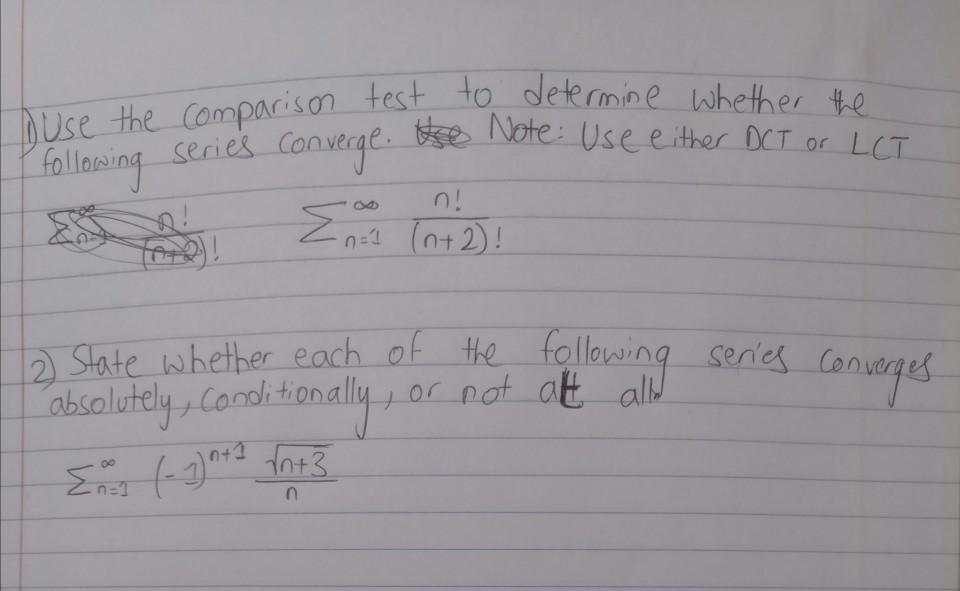 1) Use the comparison test to determine whether the
following series converge. Note: Use either DCT or LCT
∑_{n=1}^{∞} n!/(n+2)!
2) State whether each of the following series converges
absolutely, conditionally, or not at all
∑_{n=1}^{∞} (-1)^{n+1} √(n+3)/n